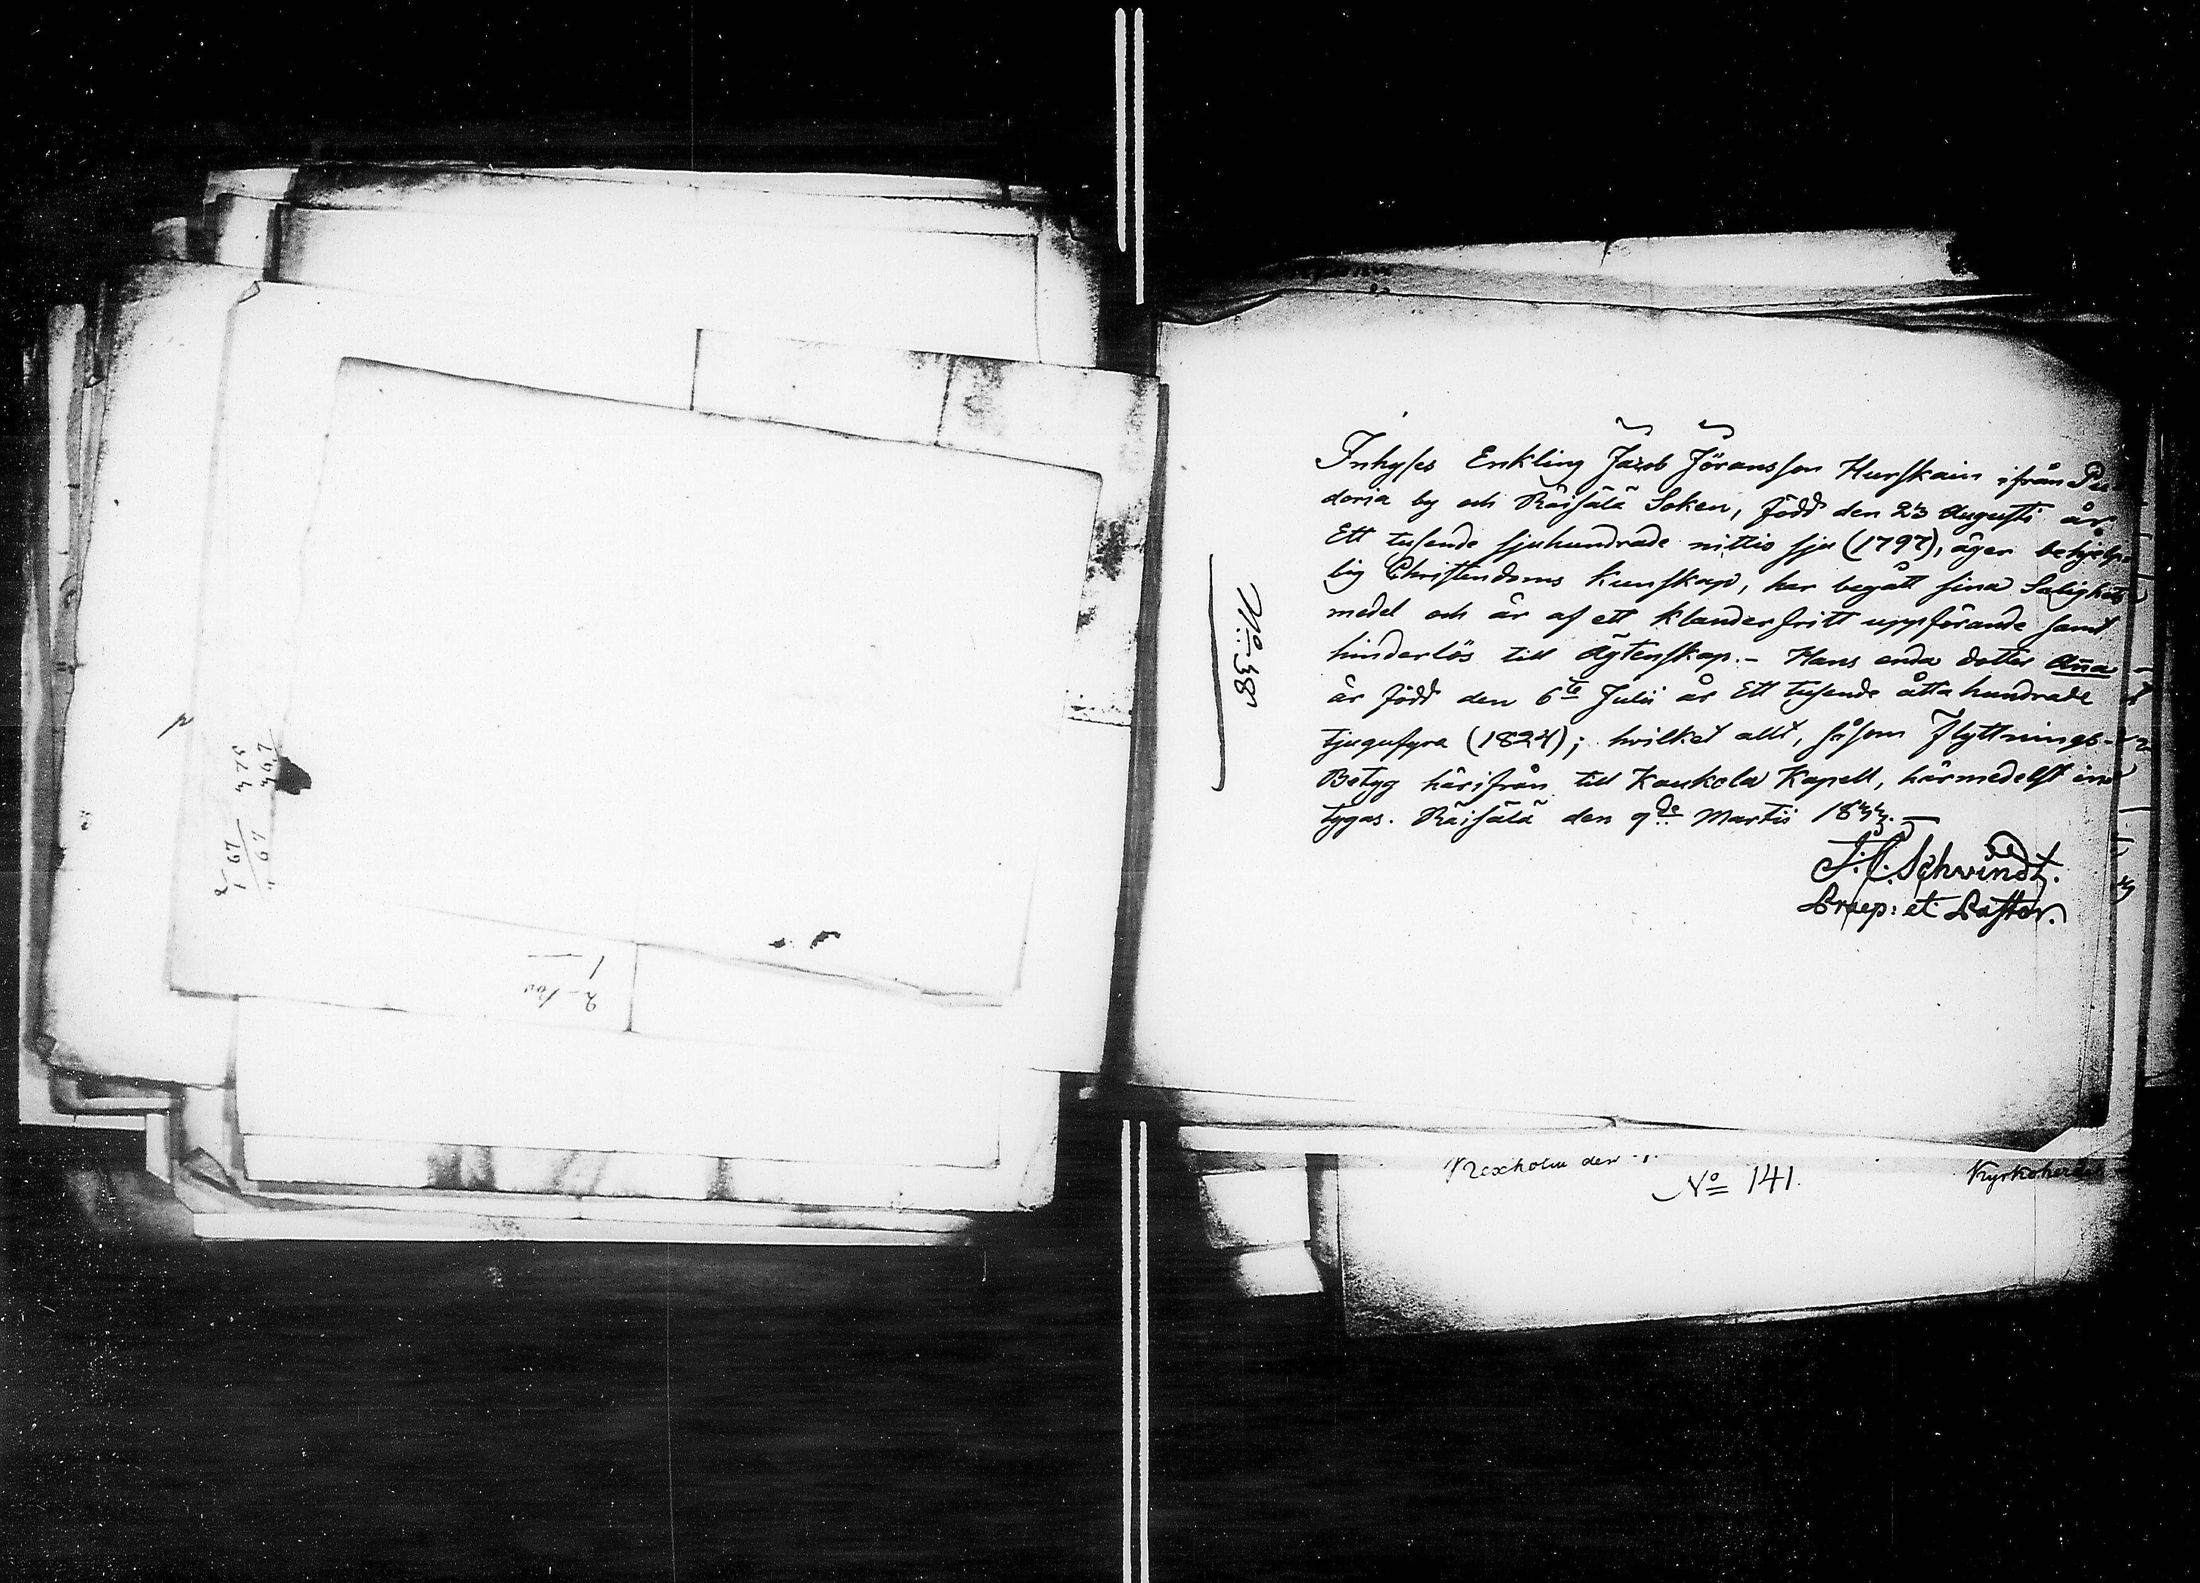 Inhyses Enkling Jacob Jöransson Hurskain ifrån Pu
doria by och Räisälä Soken, född den 23 Augusti år
Ett tusende sjuhundrade nittio sju (1797), äger behjelp-
lig Christendoms kunskap, har begått sina Salighets
medel och är af ett klanderfritt uppförande samt
hinderlös till Ägtenskap.- Hans enda dotter Anna
är född den 6te Julii år Ett tusende åttahundrade
tjugufyra (1824); hvilket allt, såsom Flyttnings-
Betyg härifrån till Kaukola Kapell, härmedelst
tygas. Räisälä den 9de Martii 1833.
Schvindt.
Praep: et Pastor.
No 38
den
No 141.
Kyrkoher